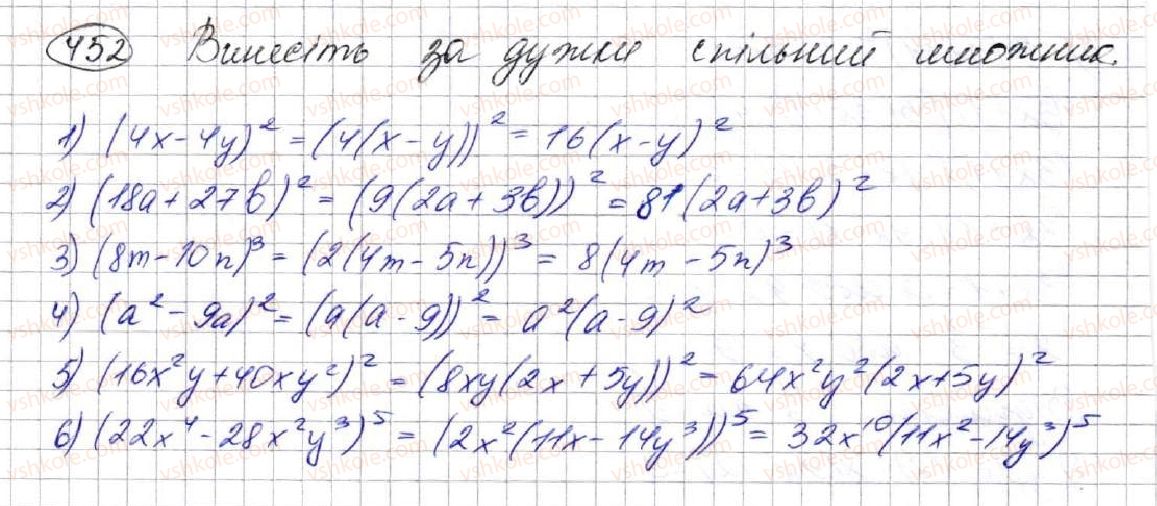 452 Винесіть за дужки спільний множник.
1) (4x-4y)² = (4(x-y))² = 16(x-y)²
2) (18a+27b)² = (9(2a+3b))² = 81(2a+3b)²
3) (8m-10n)³ = (2(4m-5n))³ = 8(4m-5n)³
4) (a²-9a)² = (a(a-9))² = a²(a-9)²
5) (16x²y+40xy²)² = (8xy(2x+5y))² = 64x²y²(2x+5y)²
6) (22x⁴-28x²y³)⁵ = (2x²(11x-14y³))⁵ = 32x¹⁰(11x²-14y³)⁵